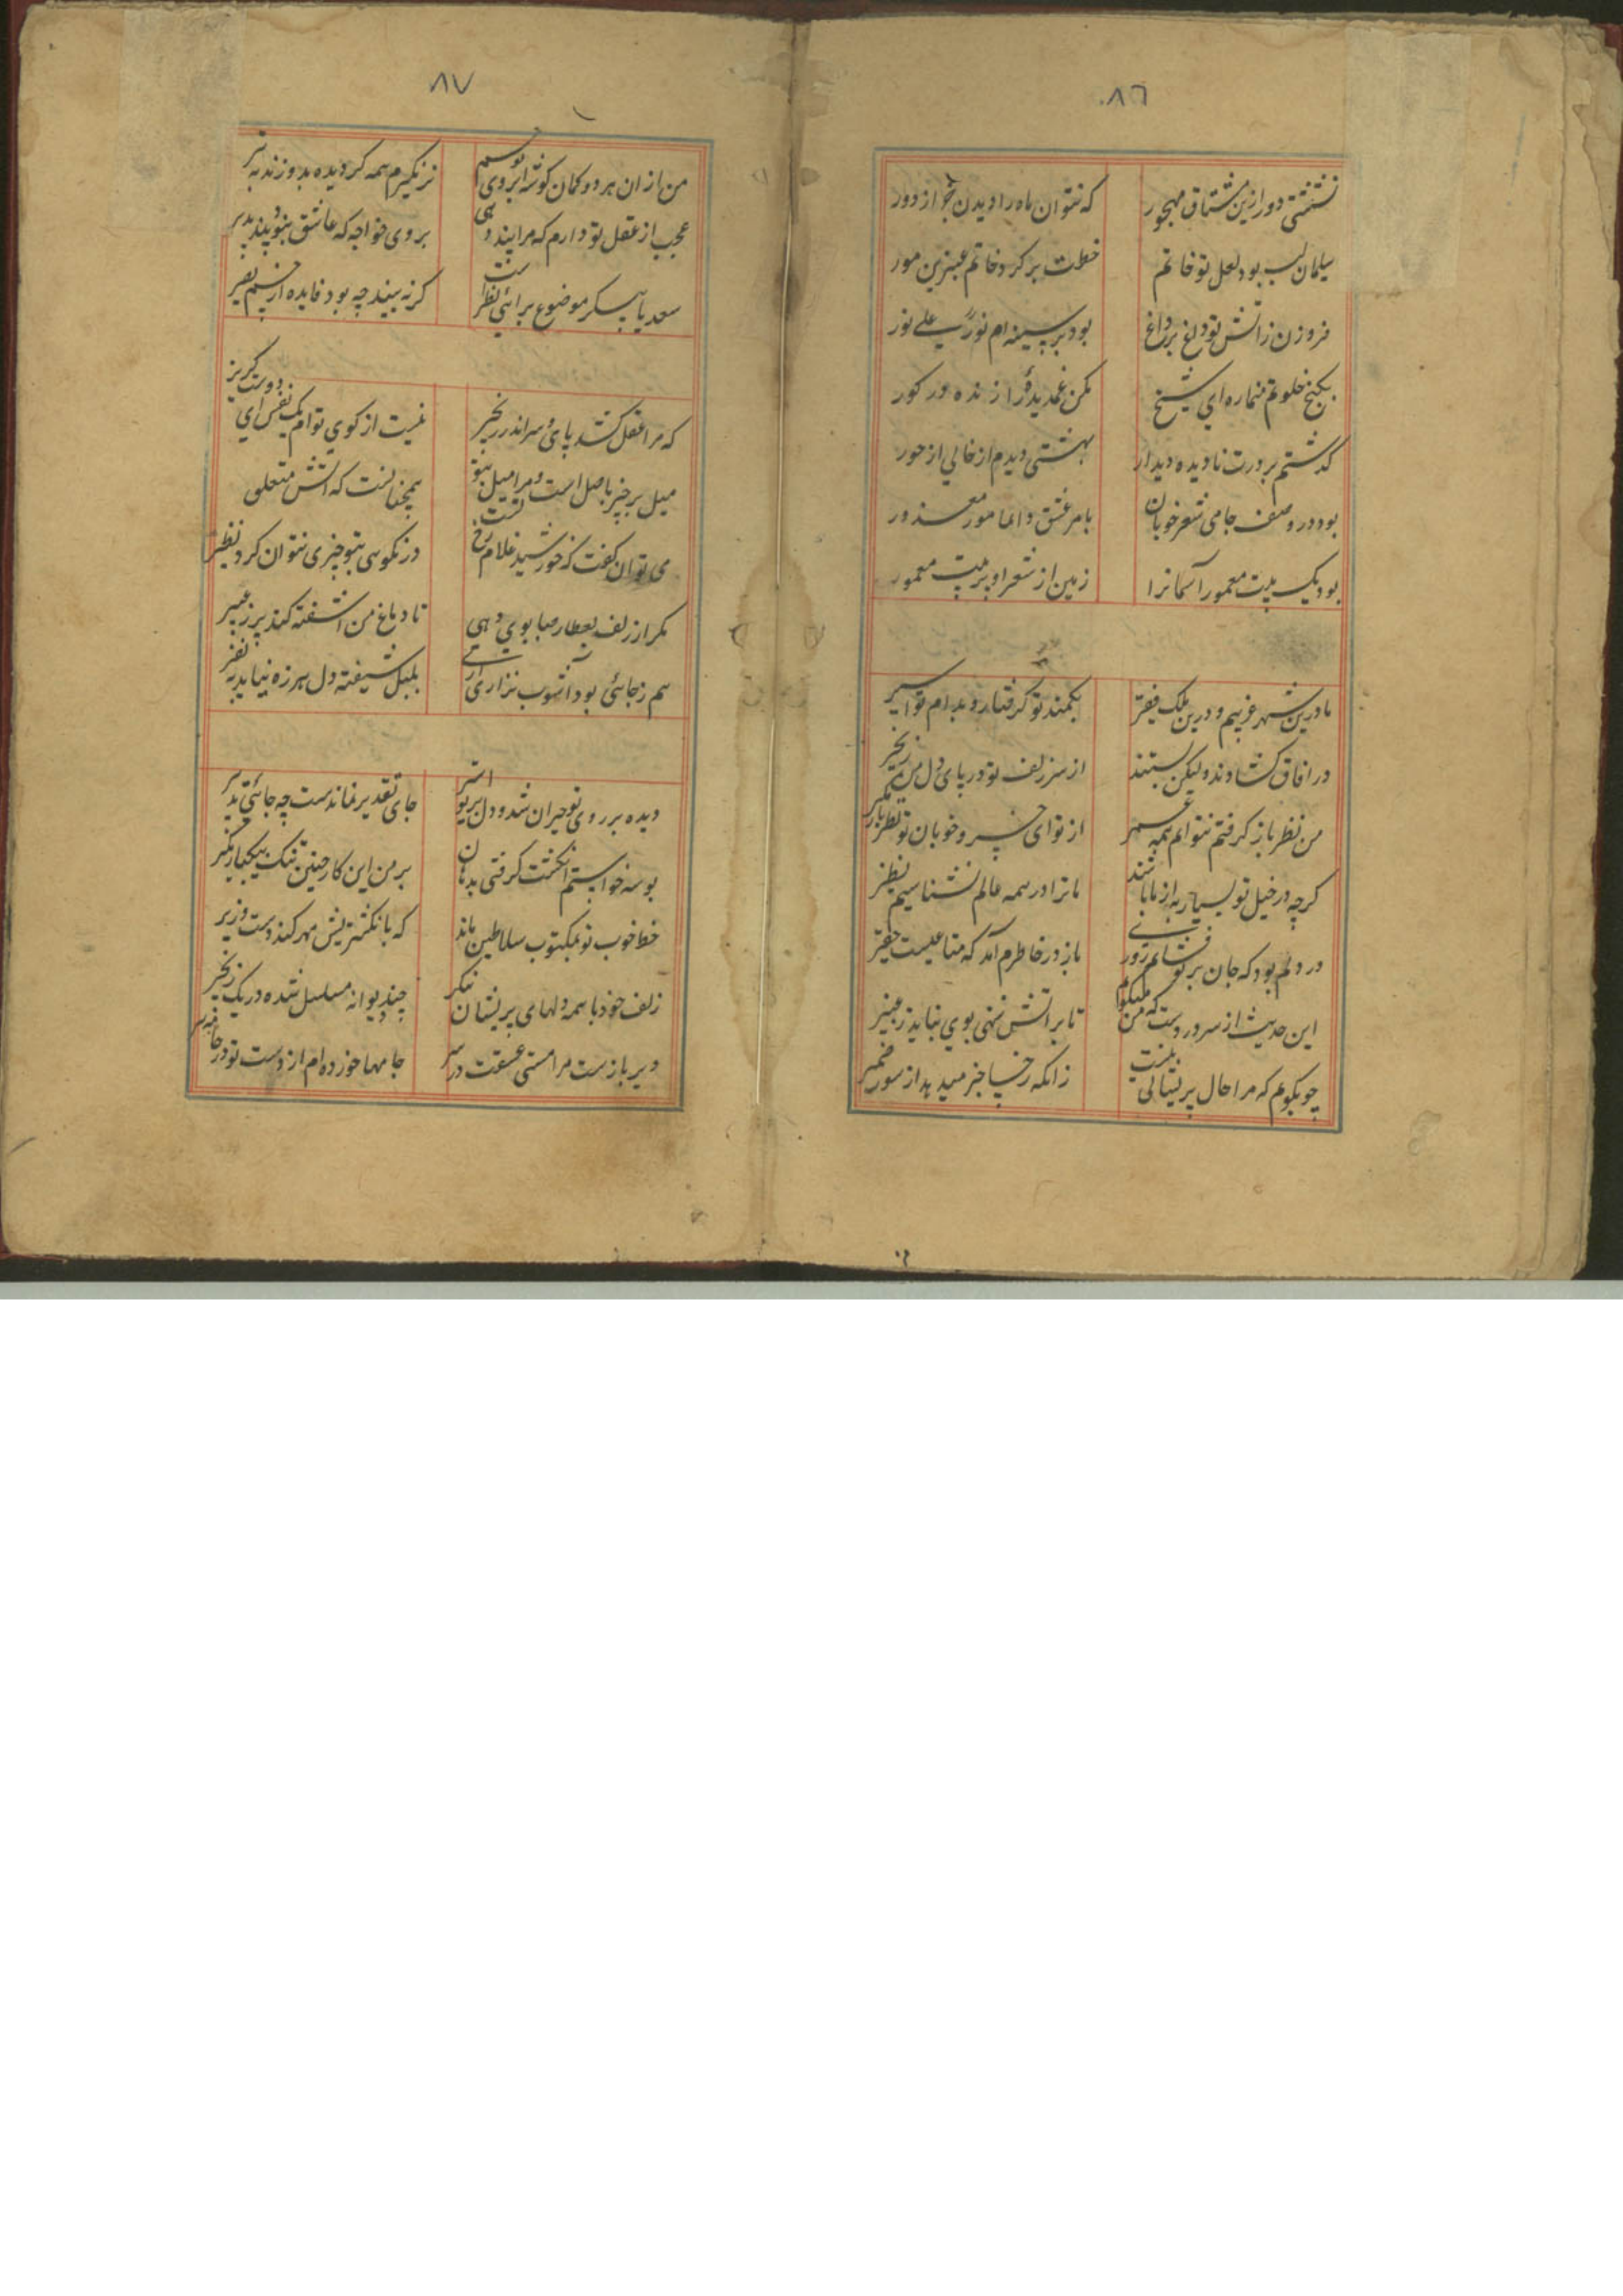 ٨٦
نشستی دور ازین مشتاق مهجور
که نتوان ماه را دیدن جز از دور
سلیمان لب بود لعل تو خاتم
خطت بر کرد خاتم عنبرین مور
فروزن ز آتش تو داغ بر داغ
بود بر سینه ام نور علی نور
بکنج خلوتم منما ره ای شیخ
مکن غمدیدهٔ را زنده در کور
کذشتم بر درت نادیده دیدار
بهشتی دیدم از خالی از حور
بود در وصف جامی شعر خوبان
بامر عشق دائما مور معذور
بود یک بیت معمور آسمانرا
زمین از شعر او پر بیت معمور
ما درین شهر غریبیم و درین ملک فقیر
بکمند تو کرفتار و بدام تو اسیر
در افاق کشادند و لیکن بستند
از سر زلف تو در پای دل من زنجیر
من نظر باز کرفتم نتوانم همه عمر
از تو ای خسرو خوبان تو نظر باز مکیر
کرچه در خیل تو بسیار به از ما باشند
ما ترا در همه عالم نشناسیم نظیر
در دلم بود که جان بر تو فشانم روزی
باز در خاطرم آمد که متاعیست حقیر
این حدیث از سر دردست که من میکویم
تا بر آتش ننهی بوی نیاید ز عبیر
چو بکویم که مرا حال پریشانی نیست
زانکه رخسار خبر میدهد از سور ضمیر
٨٧
من از ان هر دو کمان کوشه ابروی تو چشم
نز نکیرم همه کر دیده بدوزند به تیر
عجب از عقل تو دارم که مرا پند دهی
برو ی خواجه که عاشق نبود پند پذیر
سعدیا پیکر موضوع برائی نظرست
کر نه بیند چه بود فایده از چشم بصیر
که مرا عقل کشد پای و سر اندر زنجیر
نیست از کوی تو ام یک نفس ای دوست کریز
میل بر چیز باصل است و مرا میل بتو
همچنانست که آتش متعلق
می توان کفت که خورشید غلام رخ تست
در نکوئی بتو چیزی نتوان کرد نظیر
مکر از زلف بعطار صبا بوی دهی
تا دماغ من آشفته کند پر ز عبیر
هم ز جائی بود آشوب نزاری آری
بلبل شیفته دل هرزه نیاید به نفیر
دیده بر روی تو حیران شد و دل بر تو اسیر
جای تقدیر نماندست چه جائی تدبیر
بوسه خواستم انکشت کرفتی بدهان
بر من این کار چنین تنک بیکبار مکیر
خط خوب تو بمکتوب سلاطین ماند
که بانکشتریش مهر کند دست وزیر
زلف خود با همه دلهای پریشان بنکر
چند دیوانه مسلسل شده در یک زنجیر
دیر بازست مرا مستی عشقت در سر
جامها خورده ام از دست تو در